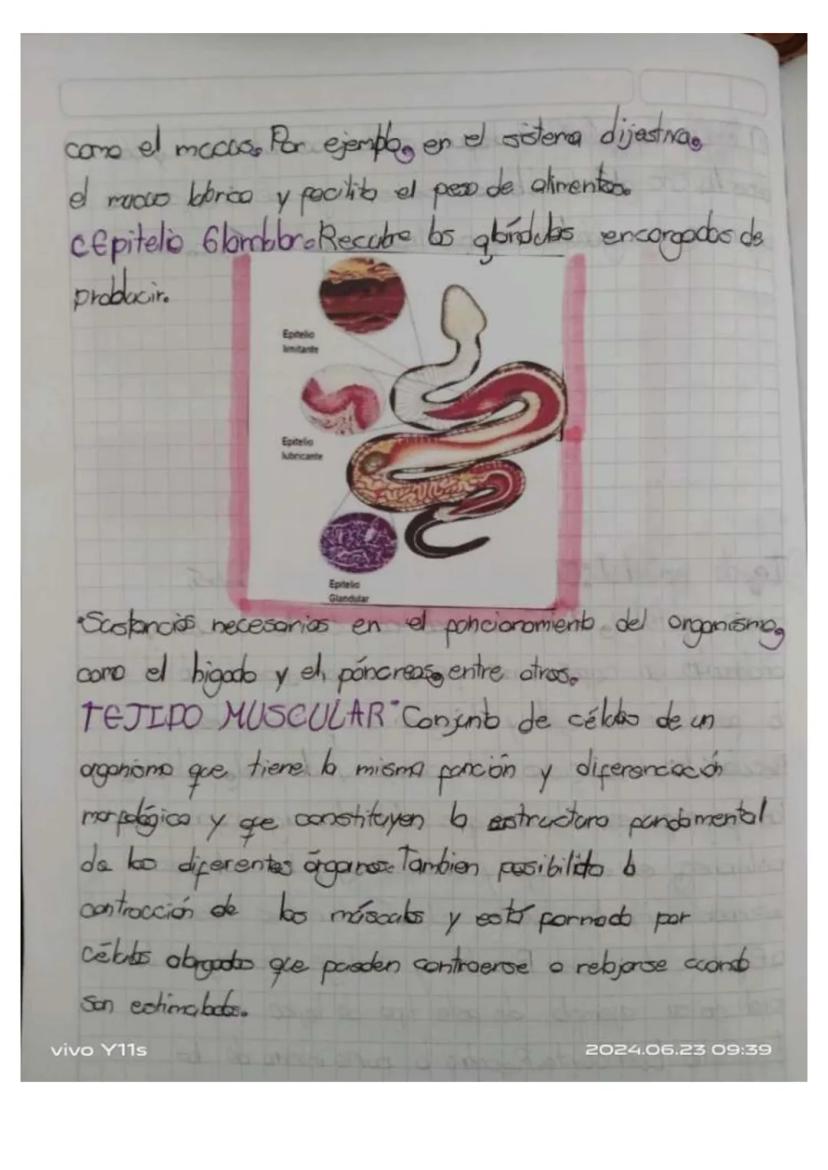 como el mocos. Por ejemplo, en el sistema dijestivo,
el moco lubrica y facilita el paso de alimentos.
c Epitelio Glandular. Recubre las glándulas encargadas de
producir.
Epitelio
limitante
Epitelio
lubricante
Epitelio
Glandular
•Sustancias necesarias en el funcionamiento del organismo,
como el higado y el páncreas, entre otros.
TEJIDO MUSCULAR "Conjunto de células de un
organismo que tiene la misma función y diferenciación
morfológica y que constituyen la estructura fundamental
de los diferentes órganos. Tambien posibilita la
contracción de los músculos y está formado por
células alargadas que pueden contraerse o relajarse cuando
son estimuladas.
vivo Y11s
2024.06.23 09:39